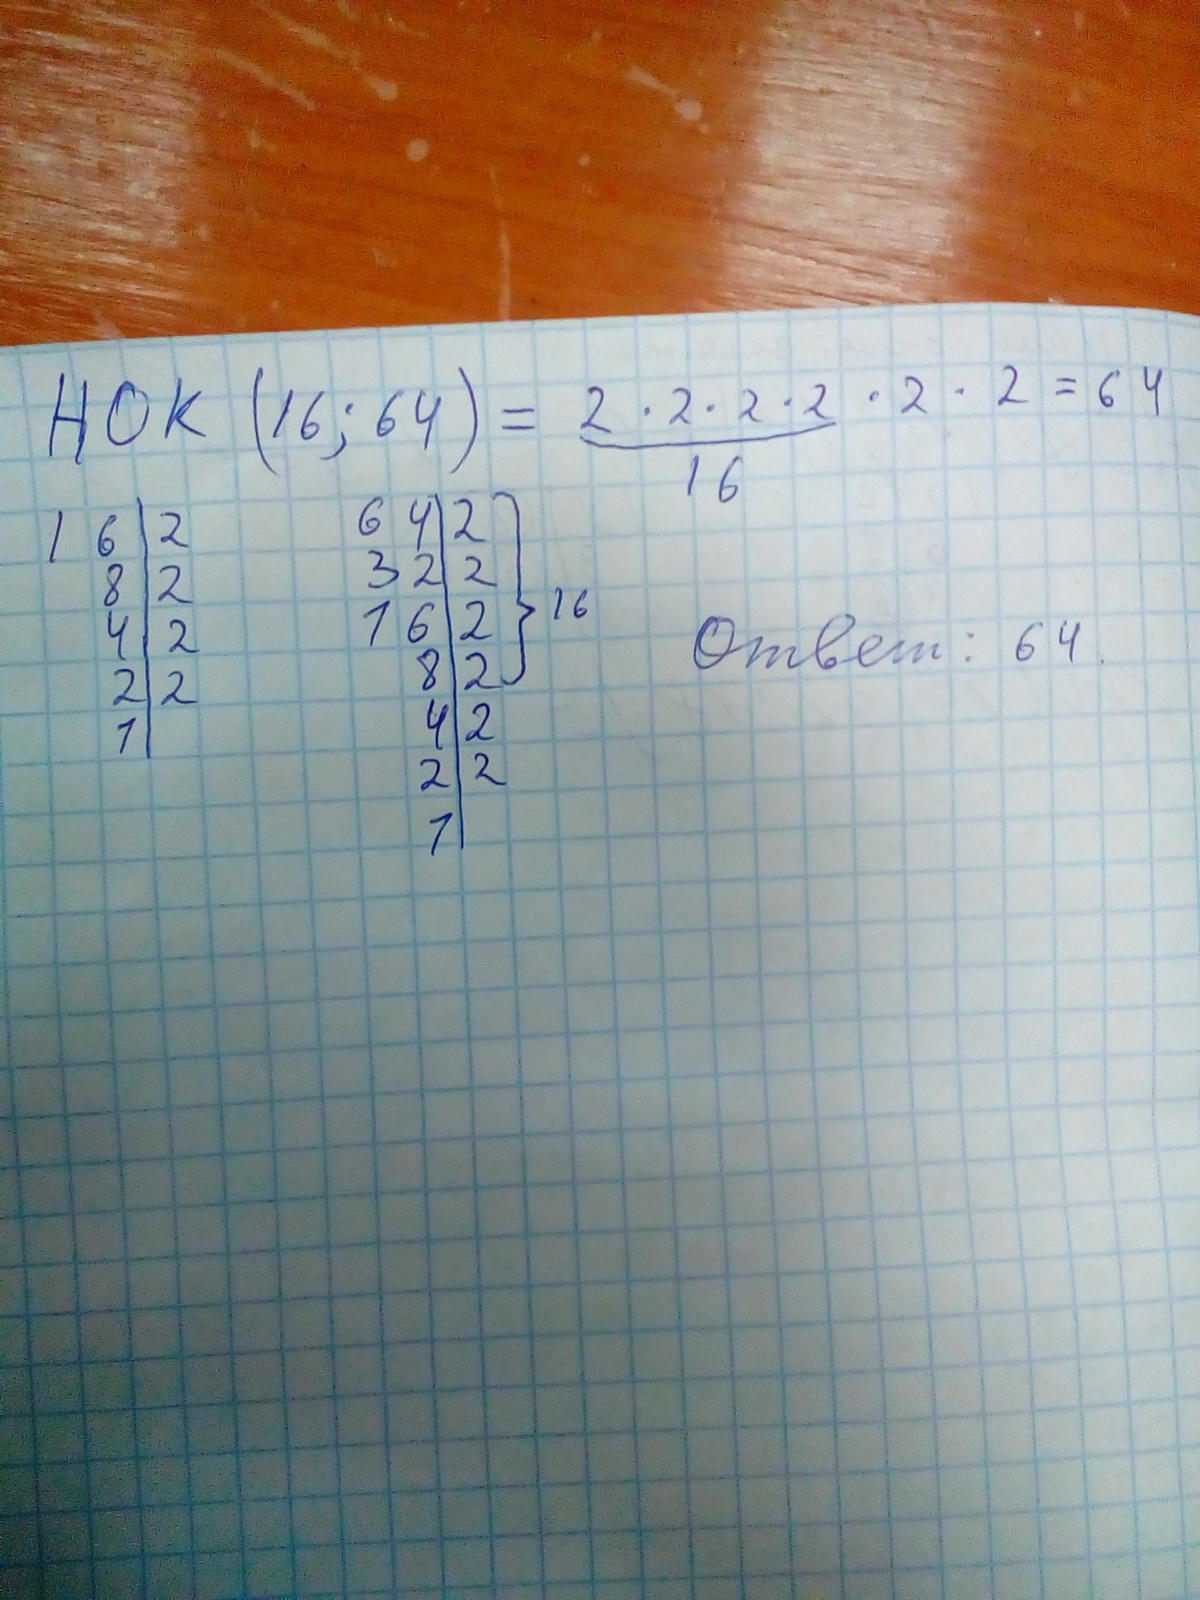 НОК (16; 64) = 2 · 2 · 2 · 2 · 2 · 2 = 64
16
16 | 2
8 | 2
4 | 2
2 | 2
1 |
64 | 2
32 | 2
16 | 2
8 | 2
4 | 2
2 | 2
1 |
} 16
Ответ: 64.